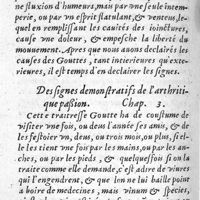 ne fluxion d'humeurs, mais par vne seule intem-
perie, ou par vn esprit flatulant, & venteux, le-
quel en remplissant les cauités des ioinctures,
cause vne doleur, & empesche la liberté du
mouuement. Apres que nous auons declairés les
causes des Gouttes, tant interieures qu'exte-
rieures, il est temps d'en declairer les signes.
Des signes demonstratifs de l'arthriti-
que passion. Chap. 3.
Cette traitresse Goutte ha de coustume de
visiter vne fois, ou deux l'année ses amis, & de
les festoier vn, deux, ou trois mois, ou plus, & tel-
le les tient vne fois par les mains, ou par les an-
ches, ou par les pieds, & quelquesfois si on la
traite comme elle demande, c'est adire de viures
qui l'engendrent, & que lon ne lui baille point
a boire de medecines, mais vinum & species,